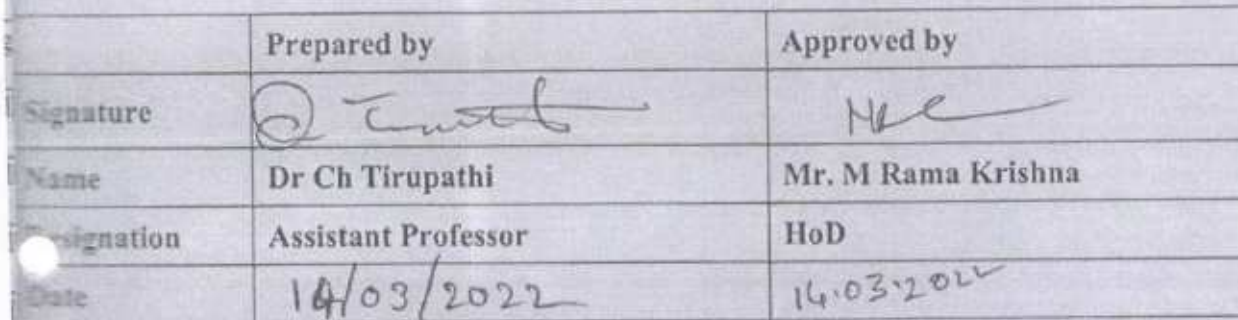 Prepared by Approved by
Signature
Name Dr Ch Tirupathi Mr. M Rama Krishna
Designation Assistant Professor HoD
Date 14/03/2022 14.03.2022